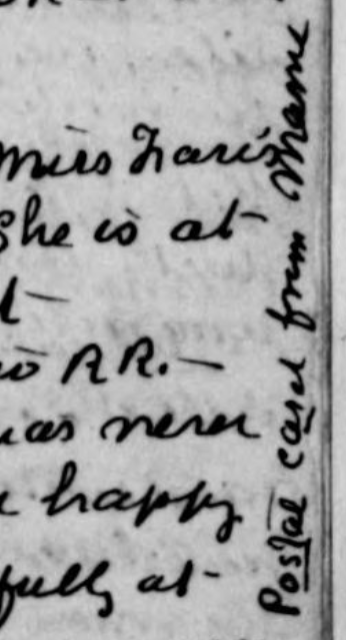 Miss Faris
She is at
R R. —
was never
happy
fully at
Postal card from Mame